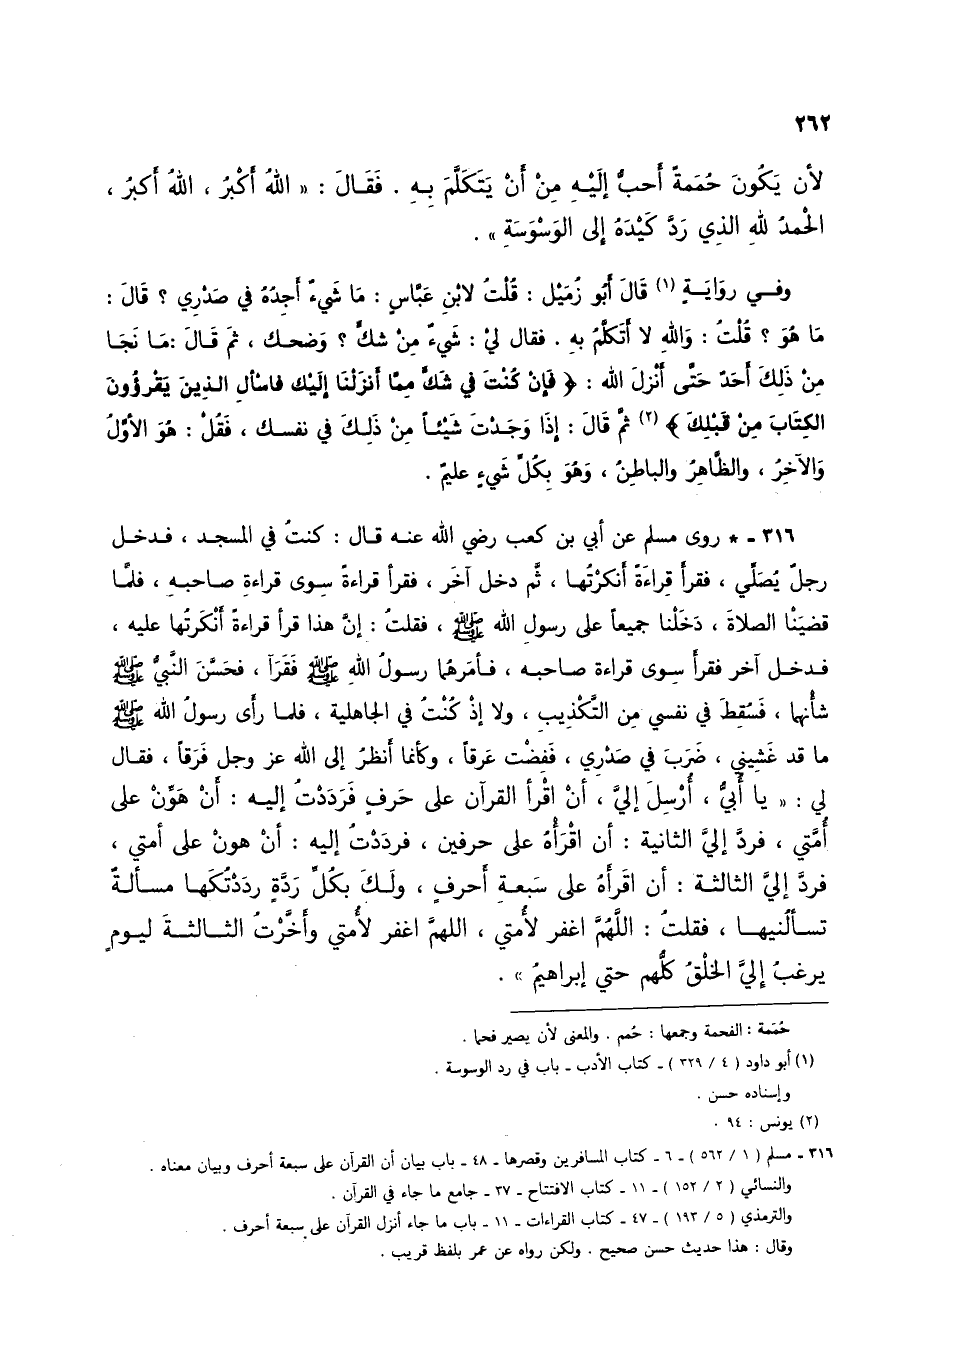 ٢٦٢
لأن يَكُونَ حُمَمةً أَحبُّ إِلَيْهِ مِنْ أَنْ يَتَكَلَّمَ بِهِ . فَقَالَ : « اللهُ أَكْبُر ، اللهُ أَكبرُ ،
الْحمدُ للهِ الذي رَدَّ كَيْدَهُ إِلى الوَسْوَسَةِ » .
وفـي روَايَـةٍ (١) قَالَ أَبُو زُمَيْل : قُلْتُ لابْنِ عَبَّاسٍ : مَا شَيءٌ أَجِدُهُ في صَدْرِي ؟ قَالَ :
مَا هُوَ ؟ قُلْتُ : وَاللهِ لا أَتكلَّمُ بهِ . فقال ليْ : شَيءٌ مِنْ شكٍّ ؟ وَضحـك ، ثمَ قَـالَ :مَـا نَجَـا
مِنْ ذَلِكَ أَحَدٌ حَتَّى أَنْزلَ الله : ﴿ فَإنْ كُنْتَ في شَكٍّ مِمَّا أَنزَلْنَا إِلَيْك فاسْأَلِ الـذينَ يَقْرؤُونَ
الكِتَابَ مِنْ قَبْلِكَ ﴾ (٢) ثمَّ قَالَ : إِذَا وَجَدْتَ شَيْئـاً مِنْ ذَلِـكَ في نفسـك ، فَقُلْ : هُوَ الأوَّلُ
وَالآخِرُ ، والظَّاهِرُ والباطِنُ ، وَهُوَ بِكُلِّ شَيءٍ عليمٌ .
٣١٦ - * روى مسلم عن أبي بن كعب رضي الله عنـه قـال : كنتُ في المسجـد ، فـدخـل
رجلٌ يُصَلِّي ، فقرأَ قِراءَةً أَنكرْتُهـا ، ثُم دخل آخَر ، فقرأ قراءةً سِوى قراءةِ صاحبِـه ، فلمَّـا
قضيَنْا الصلاةَ ، دَخَلْنا جميعاً على رسول الله ﷺ ، فقلتُ : إنَّ هذا قرأ قراءةً أَنْكَرتُها عليه ،
فـدخـل آخر فقرأَ سِـوى قراءة صـاحبـه ، فـأمَرهُما رسـولُ اللهِ ﷺ فَقَرَآ ، فحَسَّنَ النَّبيُّ ﷺ
شأْنَها ، فَسُقِطَ في نفسي مِن التَّكْذِيبِ ، ولا إذْ كُنْتُ في الجاهلية ، فلمـا رأَى رسولُ الله ﷺ
ما قد غَشِيني ، ضَرَبَ في صَدْرِي ، فَفِضْت عَرقاً ، وكأنما أَنظرُ إلى الله عز وجل فَرَقاً ، فقـال
لي : « يا أُبيُّ ، أُرْسِلَ إليَّ ، أنْ اقْرأ القرآن على حَرفٍ فَرَدَدْتُ إليـه : أَنْ هَوِّنْ على
أُمَّتي ، فردَّ إليَّ الثانية : أن اقْرَأْهُ على حرفين ، فرددْتُ إليه : أنْ هون على أمتي ،
فردَّ إليَّ الثالثـة : أن اقرَأهُ على سَبعـةِ أَحرفٍ ، ولَـكَ بكُلِّ رَدَّةٍ ردَدْتُكَهـا مسـألـةٌ
تسـألُنيهـا ، فقلتُ : اللَّهُمَّ اغفر لأُمتي ، اللهمَّ اغفر لأُمتي وأخَّرْتُ الثـالثـةَ ليـومٍ
يرغبُ إليَّ الخلْقُ كلُّهم حتي إبراهيمُ » .
حُمَمة : الفحمة وجمعها : حُمم . والمعنى لأن يصير فحما .
(١) أبو داود ( ٤ / ٣٢٩ ) ـ كتاب الأدب ـ باب في رد الوسوسة .
وإسناده حسن .
(٢) يونس : ٩٤ .
٣١٦ ـ مسلم ( ١ / ٥٦٢ ) ـ ٦ ـ كتاب المسافرين وقصرها ـ ٤٨ ـ باب بيان أن القرآن على سبعة أحرف وبيان معناه .
والنسائي ( ٢ / ١٥٢ ) ـ ١١ ـ كتاب الافتتاح ـ ٣٧ ـ جامع ما جاء في القرآن .
والترمذي ( ٥ / ١٩٣ ) ـ ٤٧ ـ كتاب القراءات ـ ١١ ـ باب ما جاء أنزل القرآن على سبعة أحرف .
وقال : هذا حديث حسن صحيح . ولكن رواه عن عمر بلفظ قريب .